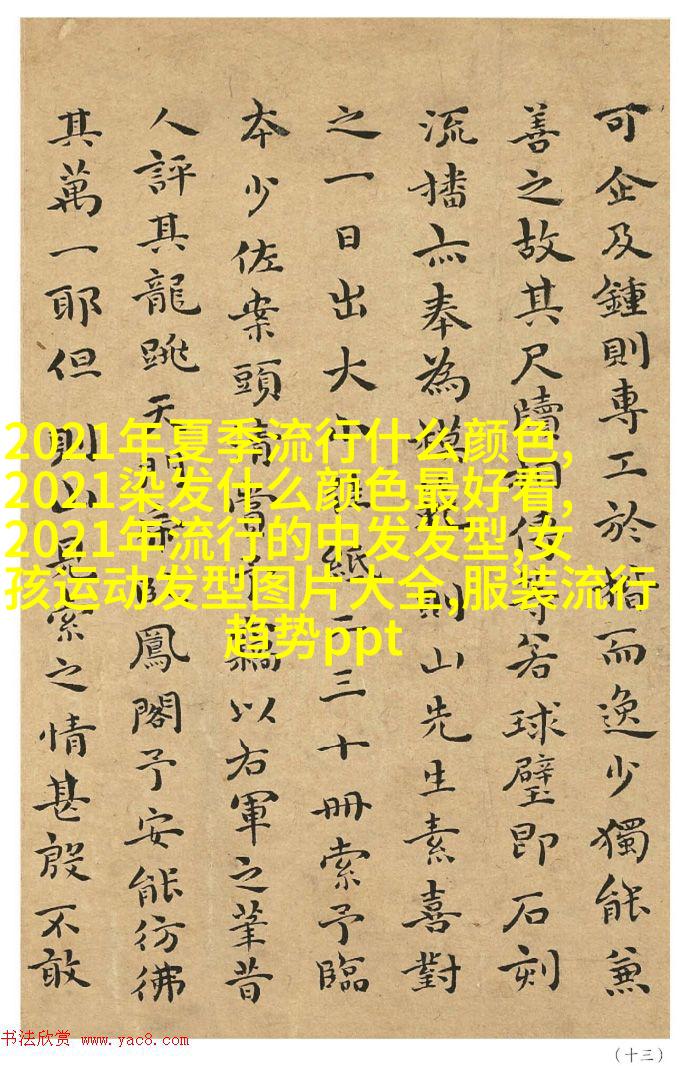 可企及鍾則專工於楷而逸少獨能兼
善之故其尺牘若球璧即石刻
流播亦奉為模範則山先生素喜對
之一日出大小紙二三十冊索予臨
本少佐案頭以右軍之筆昔
人評其龍跳天門虎臥鳳閣予安能彷彿
其萬一耶但則山是索之情甚殷不敢
2021年夏季流行什么颜色,
2021染发什么颜色最好看,
2021年流行的中发发型,女
孩运动发型图片大全,服装流行
趋势ppt
书法欣赏 www.yac8.com
(十三)